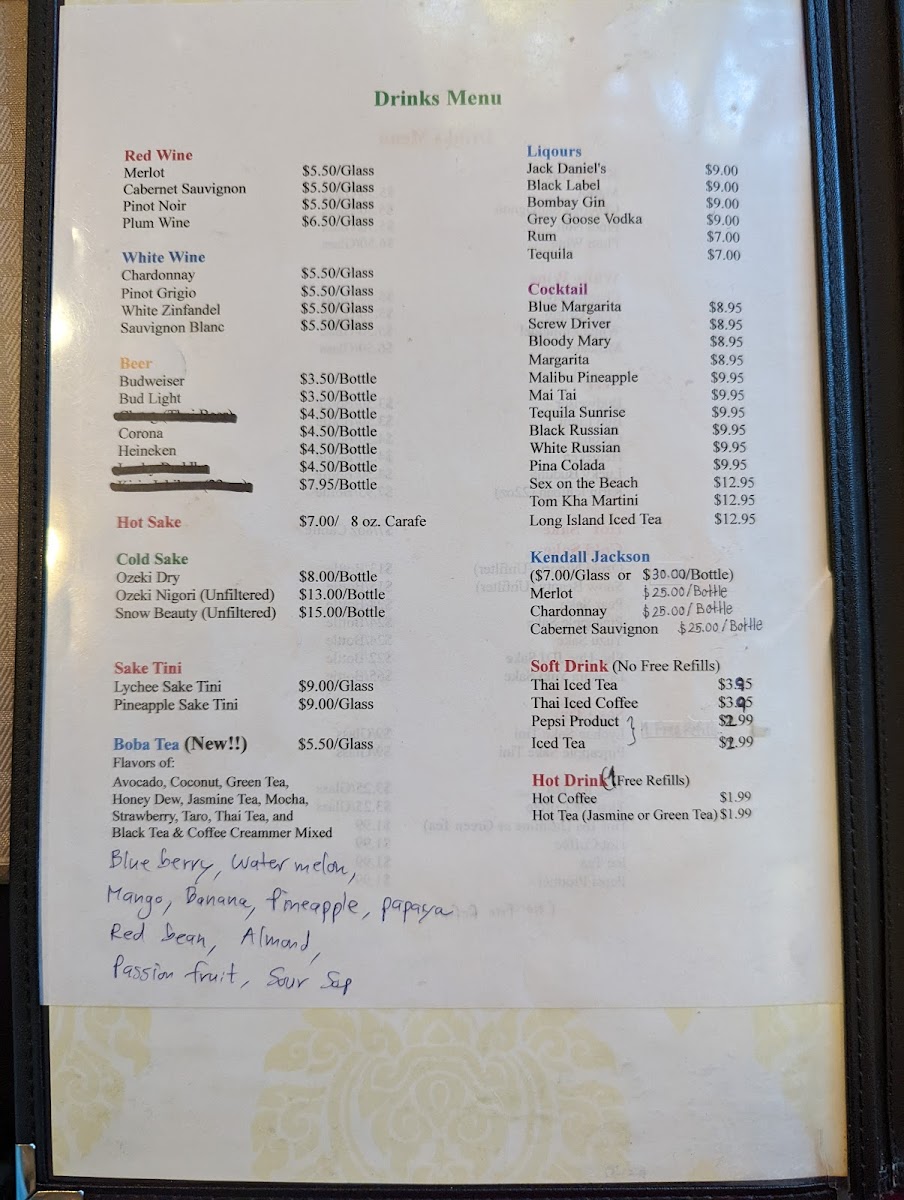 Drinks Menu
Red Wine
Merlot $5.50/Glass
Cabernet Sauvignon $5.50/Glass
Pinot Noir $5.50/Glass
Plum Wine $6.50/Glass
White Wine
Chardonnay $5.50/Glass
Pinot Grigio $5.50/Glass
White Zinfandel $5.50/Glass
Sauvignon Blanc $5.50/Glass
Beer
Budweiser $3.50/Bottle
Bud Light $3.50/Bottle
$4.50/Bottle
Corona $4.50/Bottle
Heineken $4.50/Bottle
$4.50/Bottle
$7.95/Bottle
Hot Sake $7.00/ 8 oz. Carafe
Cold Sake
Ozeki Dry $8.00/Bottle
Ozeki Nigori (Unfiltered) $13.00/Bottle
Snow Beauty (Unfiltered) $15.00/Bottle
Sake Tini
Lychee Sake Tini $9.00/Glass
Pineapple Sake Tini $9.00/Glass
Boba Tea (New!!) $5.50/Glass
Flavors of:
Avocado, Coconut, Green Tea,
Honey Dew, Jasmine Tea, Mocha,
Strawberry, Taro, Thai Tea, and
Black Tea & Coffee Creammer Mixed
Blue berry, Water melon,
Mango, Banana, Pineapple, papaya
Red bean, Almond,
Passion fruit, Sour Sap
Liqours
Jack Daniel's $9.00
Black Label $9.00
Bombay Gin $9.00
Grey Goose Vodka $9.00
Rum $7.00
Tequila $7.00
Cocktail
Blue Margarita $8.95
Screw Driver $8.95
Bloody Mary $8.95
Margarita $8.95
Malibu Pineapple $9.95
Mai Tai $9.95
Tequila Sunrise $9.95
Black Russian $9.95
White Russian $9.95
Pina Colada $9.95
Sex on the Beach $12.95
Tom Kha Martini $12.95
Long Island Iced Tea $12.95
Kendall Jackson
($7.00/Glass or $30.00/Bottle)
Merlot $25.00/Bottle
Chardonnay $25.00/Bottle
Cabernet Sauvignon $25.00/Bottle
Soft Drink (No Free Refills)
Thai Iced Tea $3.95
Thai Iced Coffee $3.95
Pepsi Product $2.99
Iced Tea $2.99
Hot Drink (Free Refills)
Hot Coffee $1.99
Hot Tea (Jasmine or Green Tea) $1.99